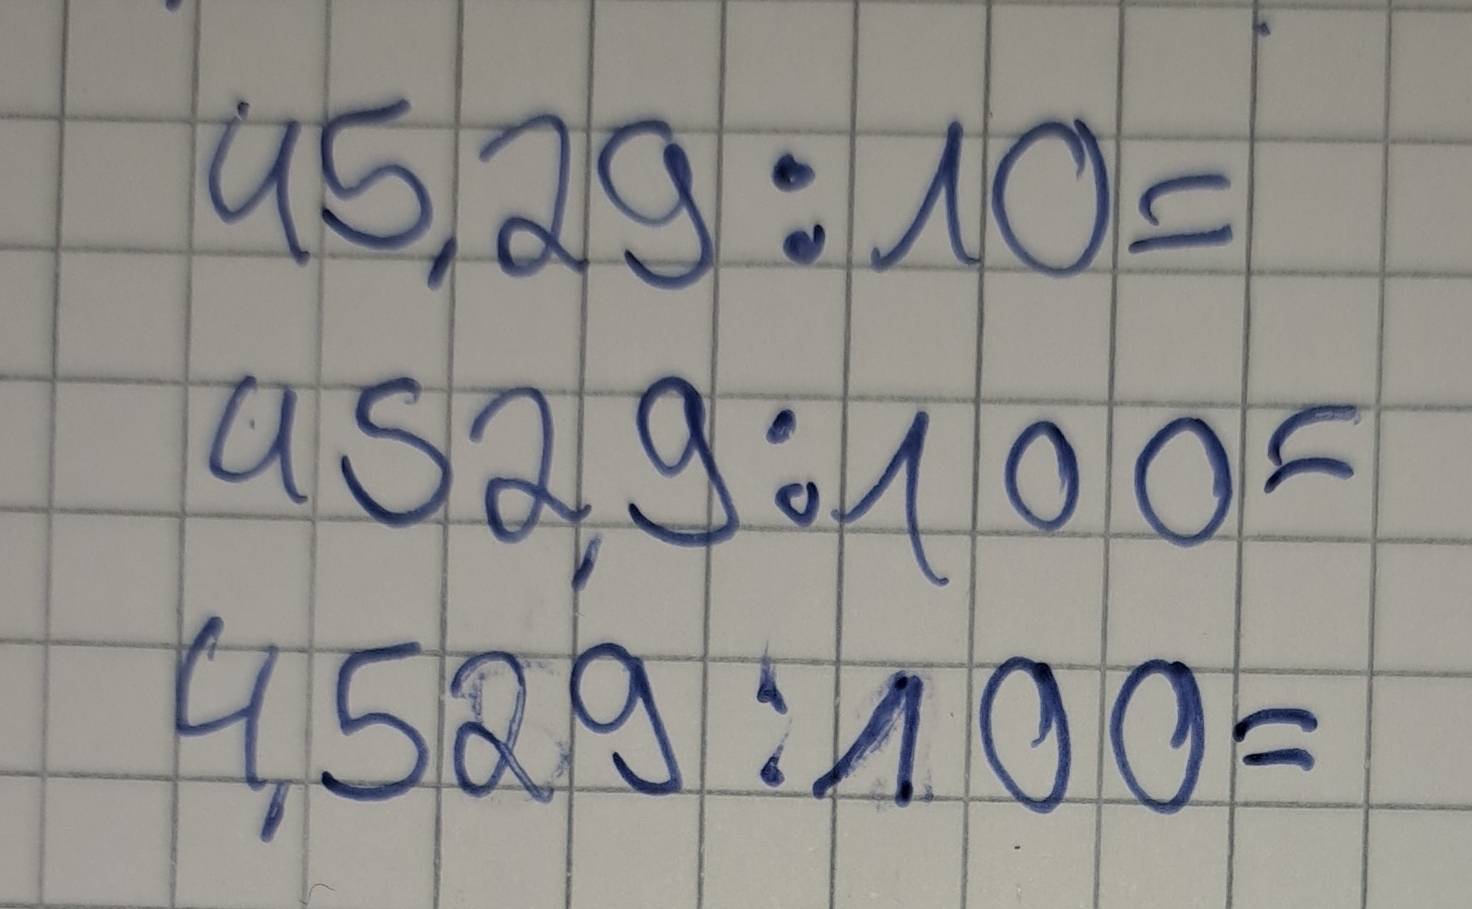 45,29:10=
452,9:100=
4,529:100=